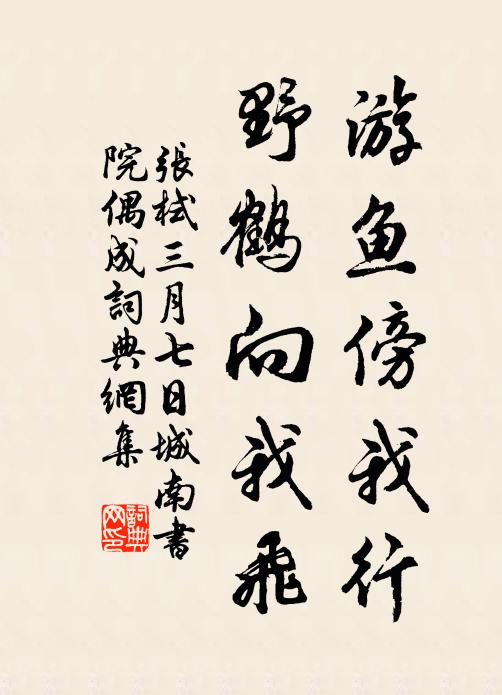 游鱼傍我行
野鶴向我飛
張栻三月七日城南書
院偶成詞典網集
詞典
网印